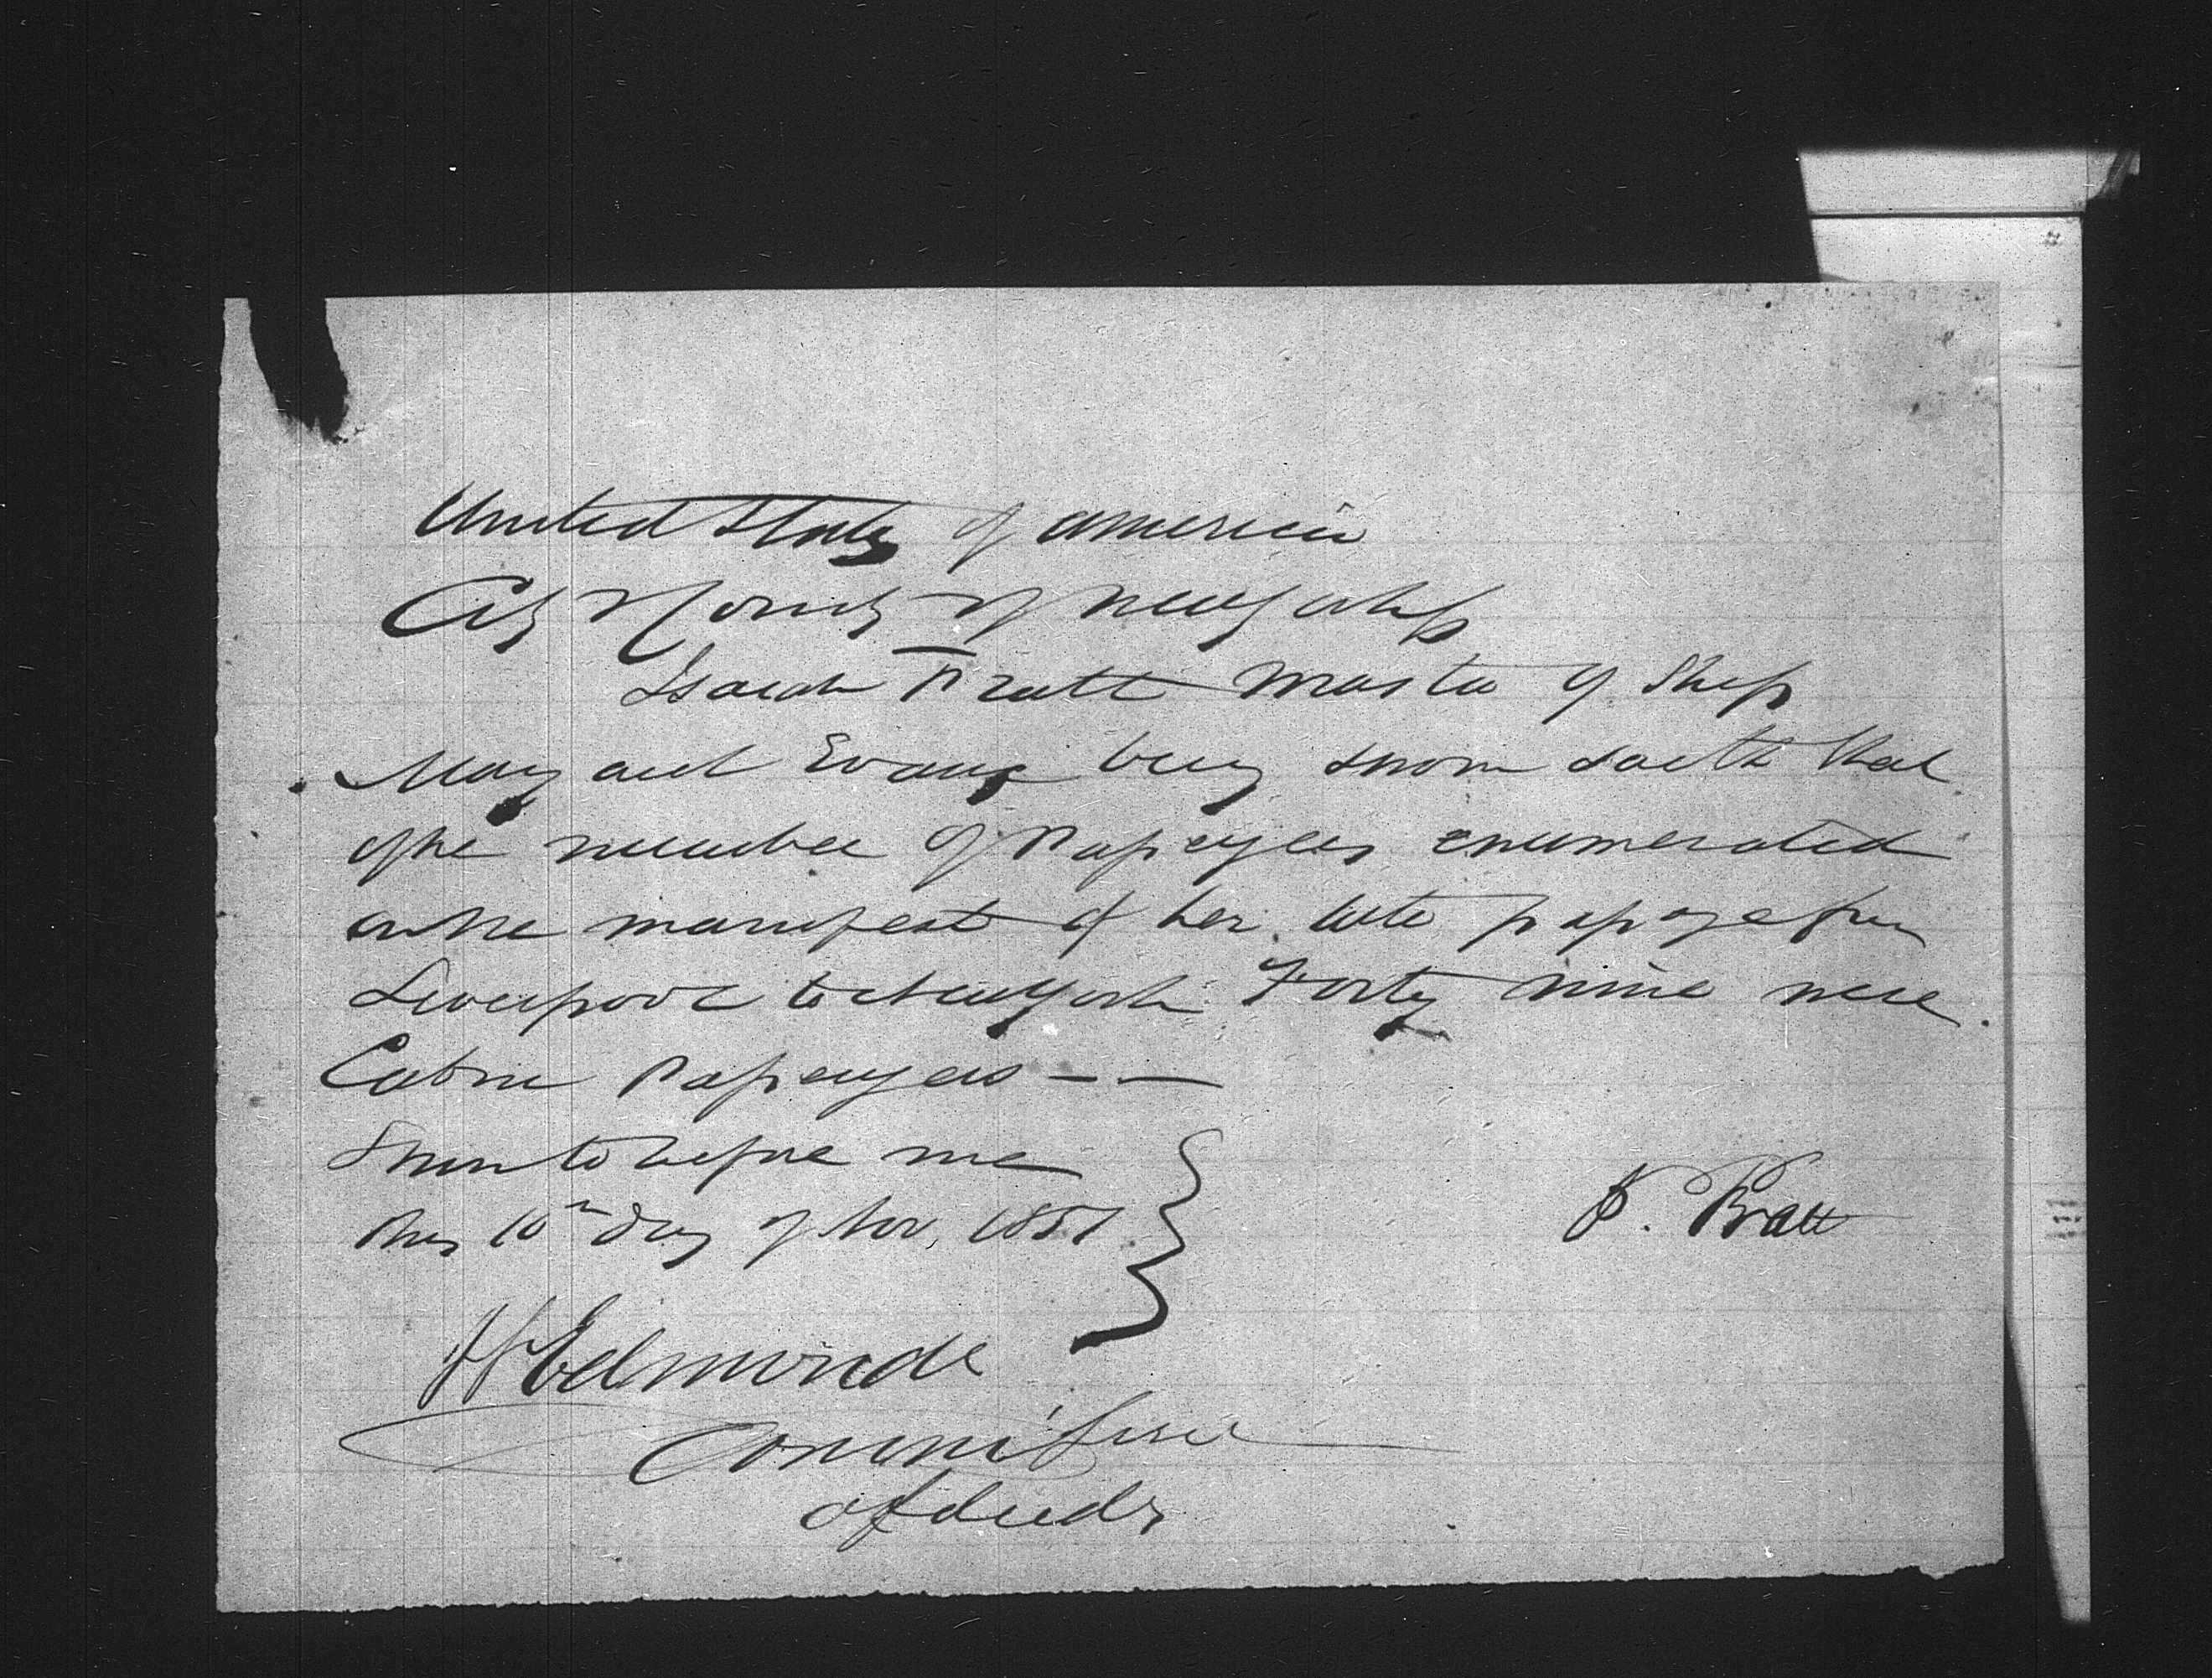 United States of America
City & County of New York ss
Isaiah Pratt Master of Ship
Margaret Evans being sworn saith that
of the number of Passengers enumerated
on the manifest of her late passage from
Liverpool to New York Forty nine were
Cabin Passengers — —
Sworn to before me
this 10th day of Nov, 1851
I. Pratt
Edmonds
Commissioner
of deeds